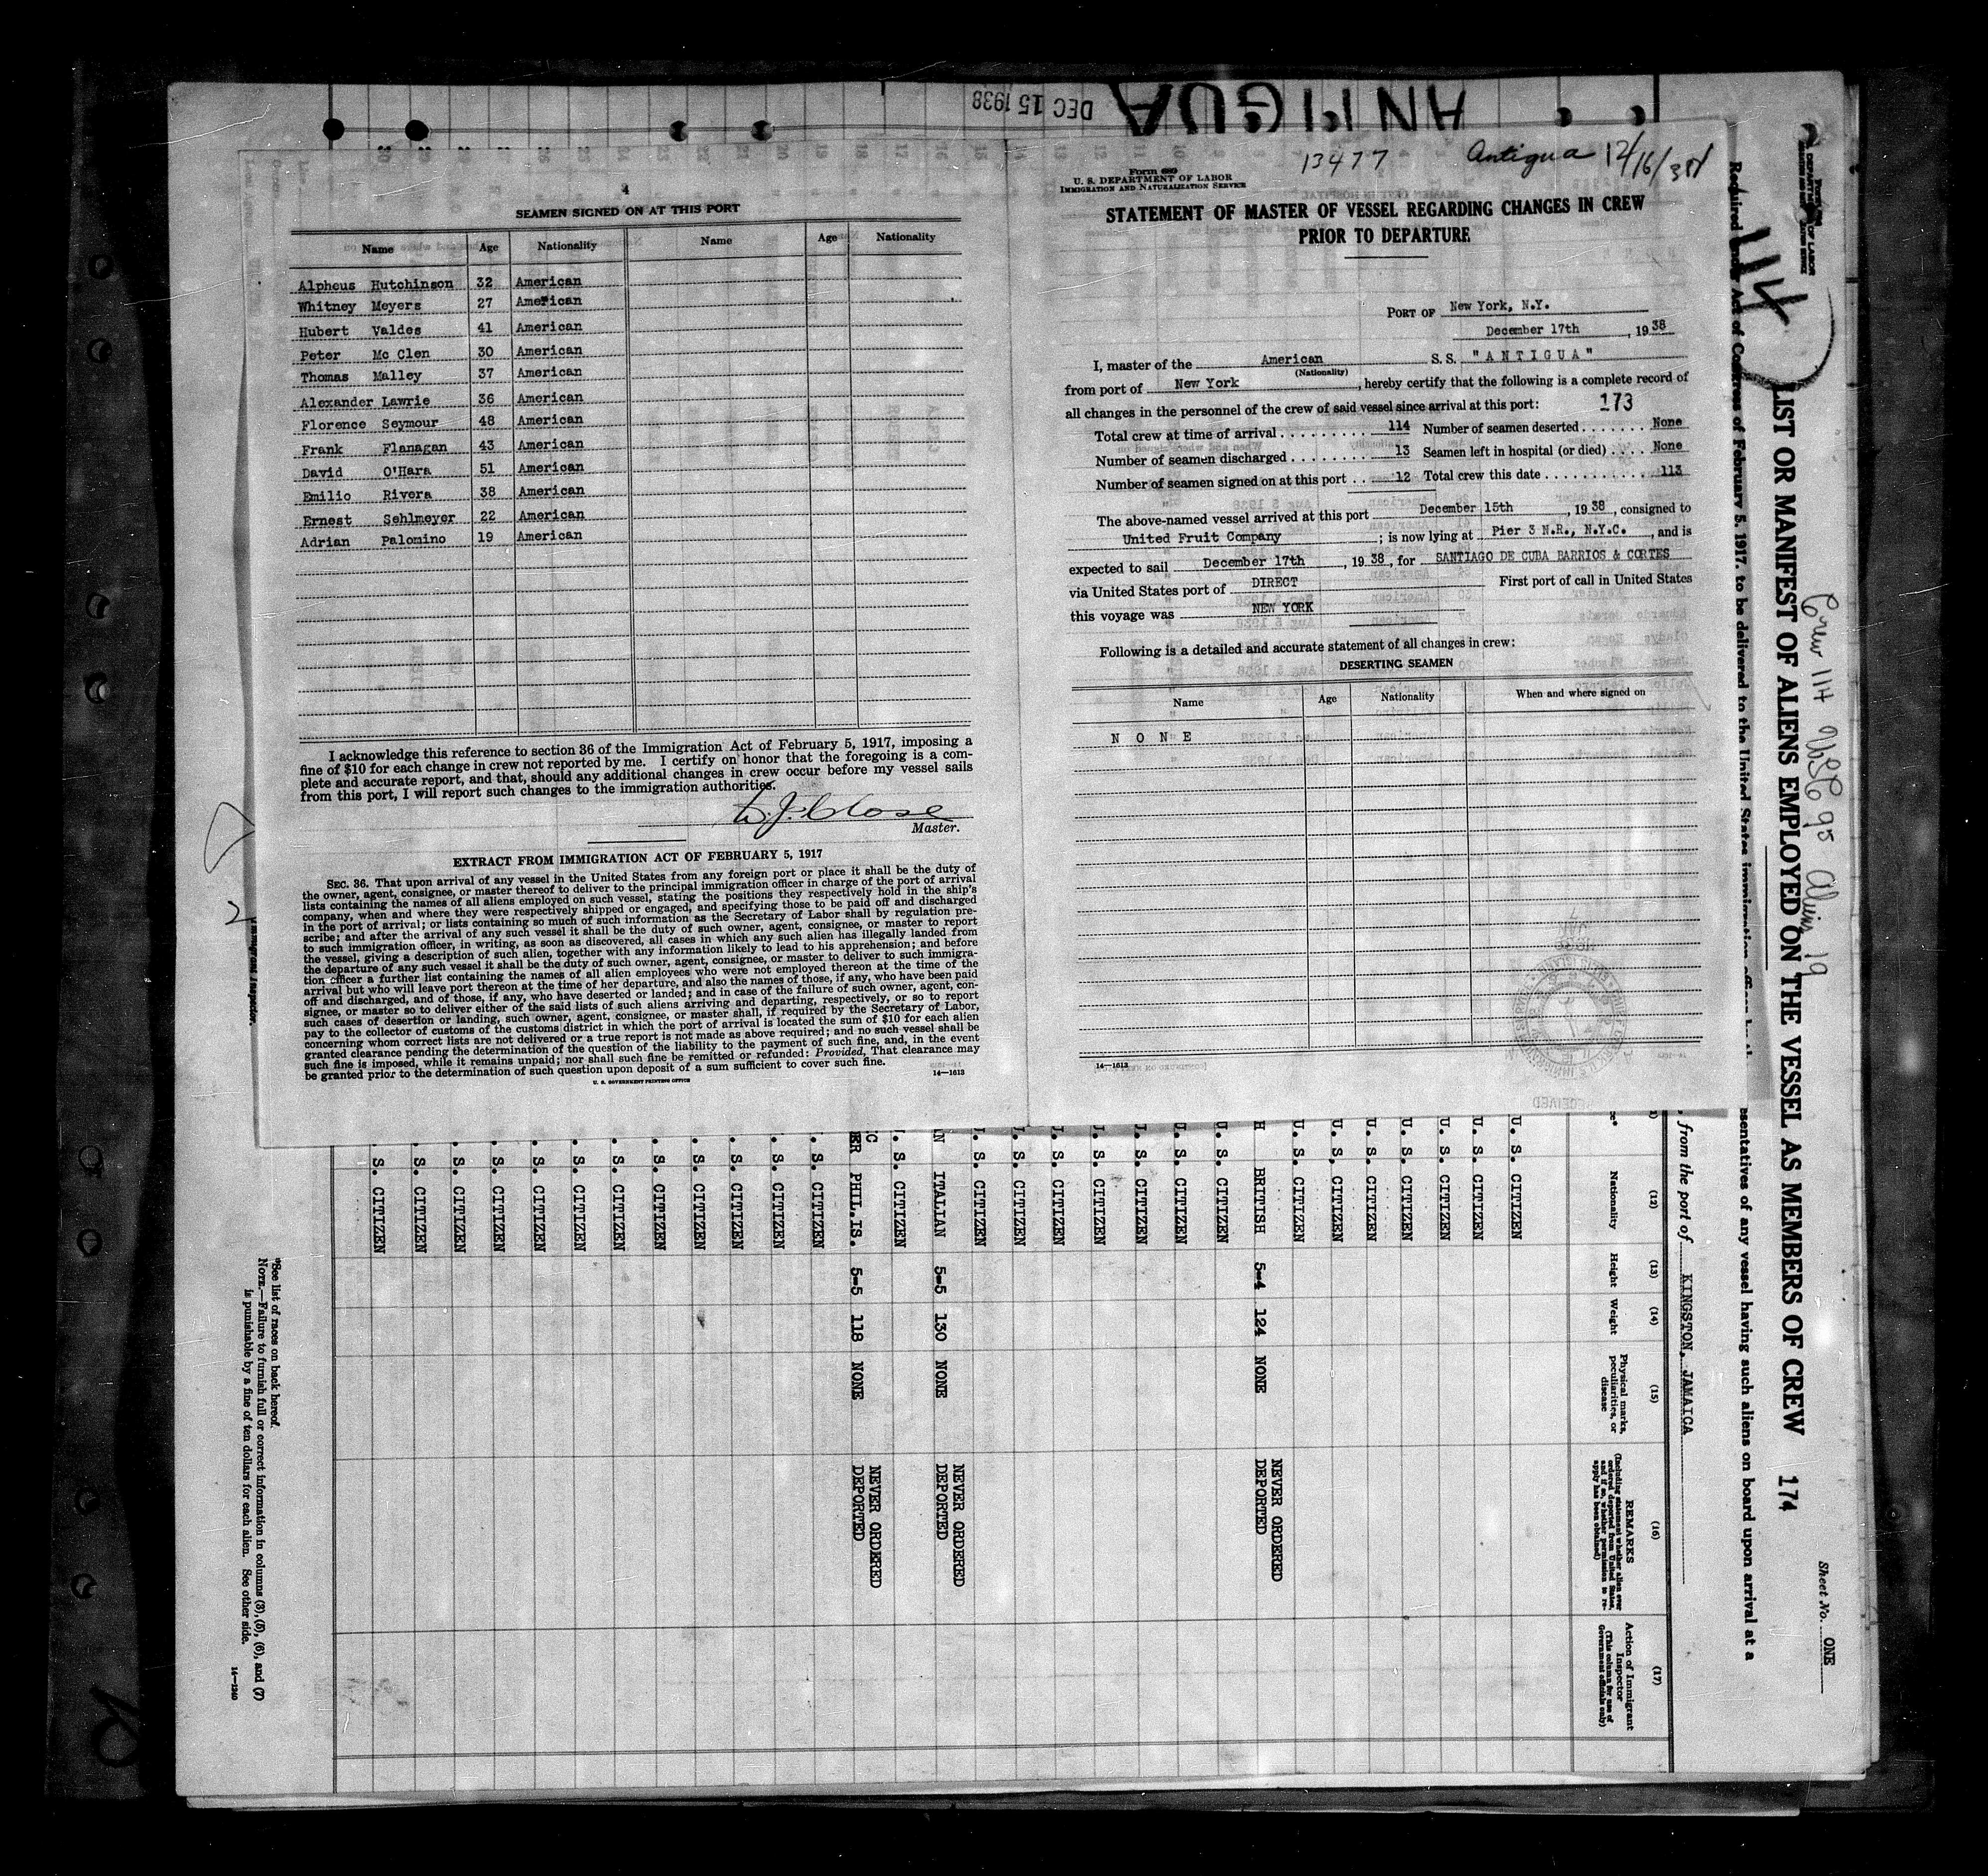 ANTIGUA
DEC 15 1938
4
SEAMEN SIGNED ON AT THIS PORT
Name Age Nationality Name Age Nationality
Alpheus Hutchinson 32 American
Whitney Meyers 27 American
Hubert Valdes 41 American
Peter Mc Clen 30 American
Thomas Malley 37 American
Alexander Lawrie 36 American
Florence Seymour 48 American
Frank Flanagan 43 American
David O'Hara 51 American
Emilio Rivera 38 American
Ernest Sehlmeyer 22 American
Adrian Palomino 19 American
I acknowledge this reference to section 36 of the Immigration Act of February 5, 1917, imposing a
fine of $10 for each change in crew not reported by me. I certify on honor that the foregoing is a com-
plete and accurate report, and that, should any additional changes in crew occur before my vessel sails
from this port, I will report such changes to the immigration authorities.
W. J. Close
Master.
EXTRACT FROM IMMIGRATION ACT OF FEBRUARY 5, 1917
SEC. 36. That upon arrival of any vessel in the United States from any foreign port or place it shall be the duty of
the owner, agent, consignee, or master thereof to deliver to the principal immigration officer in charge of the port of arrival
lists containing the names of all aliens employed on such vessel, stating the positions they respectively hold in the ship's
company, when and where they were respectively shipped or engaged, and specifying those to be paid off and discharged
in the port of arrival; or lists containing so much of such information as the Secretary of Labor shall by regulation pre-
scribe; and after the arrival of any such vessel it shall be the duty of such owner, agent, consignee, or master to report
to such immigration officer, in writing, as soon as discovered, all cases in which any such alien has illegally landed from
the vessel, giving a description of such alien, together with any information likely to lead to his apprehension; and before
the departure of any such vessel it shall be the duty of such owner, agent, consignee, or master to deliver to such immigra-
tion officer a further list containing the names of all alien employees who were not employed thereon at the time of the
arrival but who will leave port thereon at the time of her departure, and also the names of those, if any, who have been paid
off and discharged, and of those, if any, who have deserted or landed; and in case of the failure of such owner, agent, con-
signee, or master so to deliver either of the said lists of such aliens arriving and departing, respectively, or so to report
such cases of desertion or landing, such owner, agent, consignee, or master shall, if required by the Secretary of Labor,
pay to the collector of customs of the customs district in which the port of arrival is located the sum of $10 for each alien
concerning whom correct lists are not delivered or a true report is not made as above required; and no such vessel shall be
granted clearance pending the determination of the question of the liability to the payment of such fine, and, in the event
such fine is imposed, while it remains unpaid; nor shall such fine be remitted or refunded: Provided, That clearance may
be granted prior to the determination of such question upon deposit of a sum sufficient to cover such fine.
U. S. GOVERNMENT PRINTING OFFICE 14—1613
13477 Antigua 12/16/38
Form 689
U. S. DEPARTMENT OF LABOR
IMMIGRATION AND NATURALIZATION SERVICE
STATEMENT OF MASTER OF VESSEL REGARDING CHANGES IN CREW
PRIOR TO DEPARTURE
PORT OF New York, N.Y.
December 17th, 1938
I, master of the American S. S. "ANTIGUA"
(Nationality)
from port of New York, hereby certify that the following is a complete record of
all changes in the personnel of the crew of said vessel since arrival at this port: 173
Total crew at time of arrival 114 Number of seamen deserted None
Number of seamen discharged 13 Seamen left in hospital (or died) None
Number of seamen signed on at this port 12 Total crew this date 113
The above-named vessel arrived at this port December 15th, 1938, consigned to
United Fruit Company; is now lying at Pier 3 N.R., N.Y.C., and is
expected to sail December 17th, 1938, for SANTIAGO DE CUBA BARRIOS & CORTES
via United States port of DIRECT First port of call in United States
this voyage was NEW YORK
Following is a detailed and accurate statement of all changes in crew:
DESERTING SEAMEN
Name Age Nationality When and where signed on
NONE
14—1613
114
Crew 114 USC 95 Alien 19
Sheet No. ONE
LIST OR MANIFEST OF ALIENS EMPLOYED ON THE VESSEL AS MEMBERS OF CREW 174
Required under Act of Congress of February 5, 1917, to be delivered to the United States immigration officer
sentatives of any vessel having such aliens on board upon arrival at a
, from the port of KINGSTON, JAMAICA
(12) (13) (14) (15) (16) (17)
Nationality Height Weight Physical marks, peculiarities, or disease REMARKS Action of Immigrant Inspector
(Including statement whether alien ever ordered deported from United States, and if so, whether permission to re-apply has been obtained)
(This column for use of Government officials only)
U. S. CITIZEN
U. S. CITIZEN
U. S. CITIZEN
U. S. CITIZEN
U. S. CITIZEN
U. S. CITIZEN
U. S. CITIZEN
H BRITISH 5-4 124 NONE NEVER ORDERED DEPORTED
U. S. CITIZEN
U. S. CITIZEN
. S. CITIZEN
. S. CITIZEN
. S. CITIZEN
. S. CITIZEN
. S. CITIZEN
N ITALIAN 5-5 130 NONE NEVER ORDERED DEPORTED
. S. CITIZEN
ER PHIL.IS. 5-5 118 NONE NEVER ORDERED DEPORTED
. S. CITIZEN
. S. CITIZEN
. S. CITIZEN
. S. CITIZEN
. S. CITIZEN
. S. CITIZEN
. S. CITIZEN
. S. CITIZEN
. S. CITIZEN
. S. CITIZEN
. S. CITIZEN
. S. CITIZEN
Immigrant Inspector.
*See list of races on back hereof.
NOTE.—Failure to furnish full or correct information in columns (3), (5), (6), and (7)
is punishable by a fine of ten dollars for each alien. See other side.
14—1240